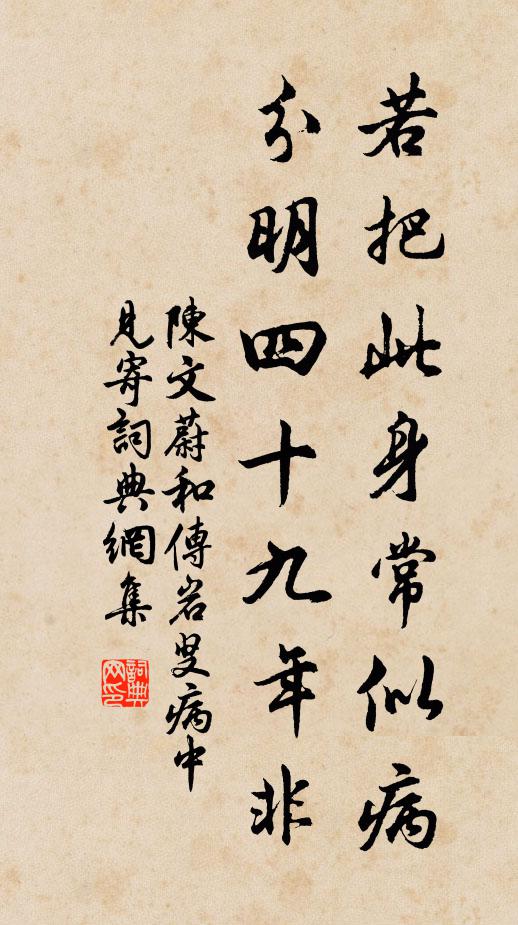 若把此身常似病
分明四十九年非
陳文蔚和傅岩叟病中
見寄詞典網集
詞典網印